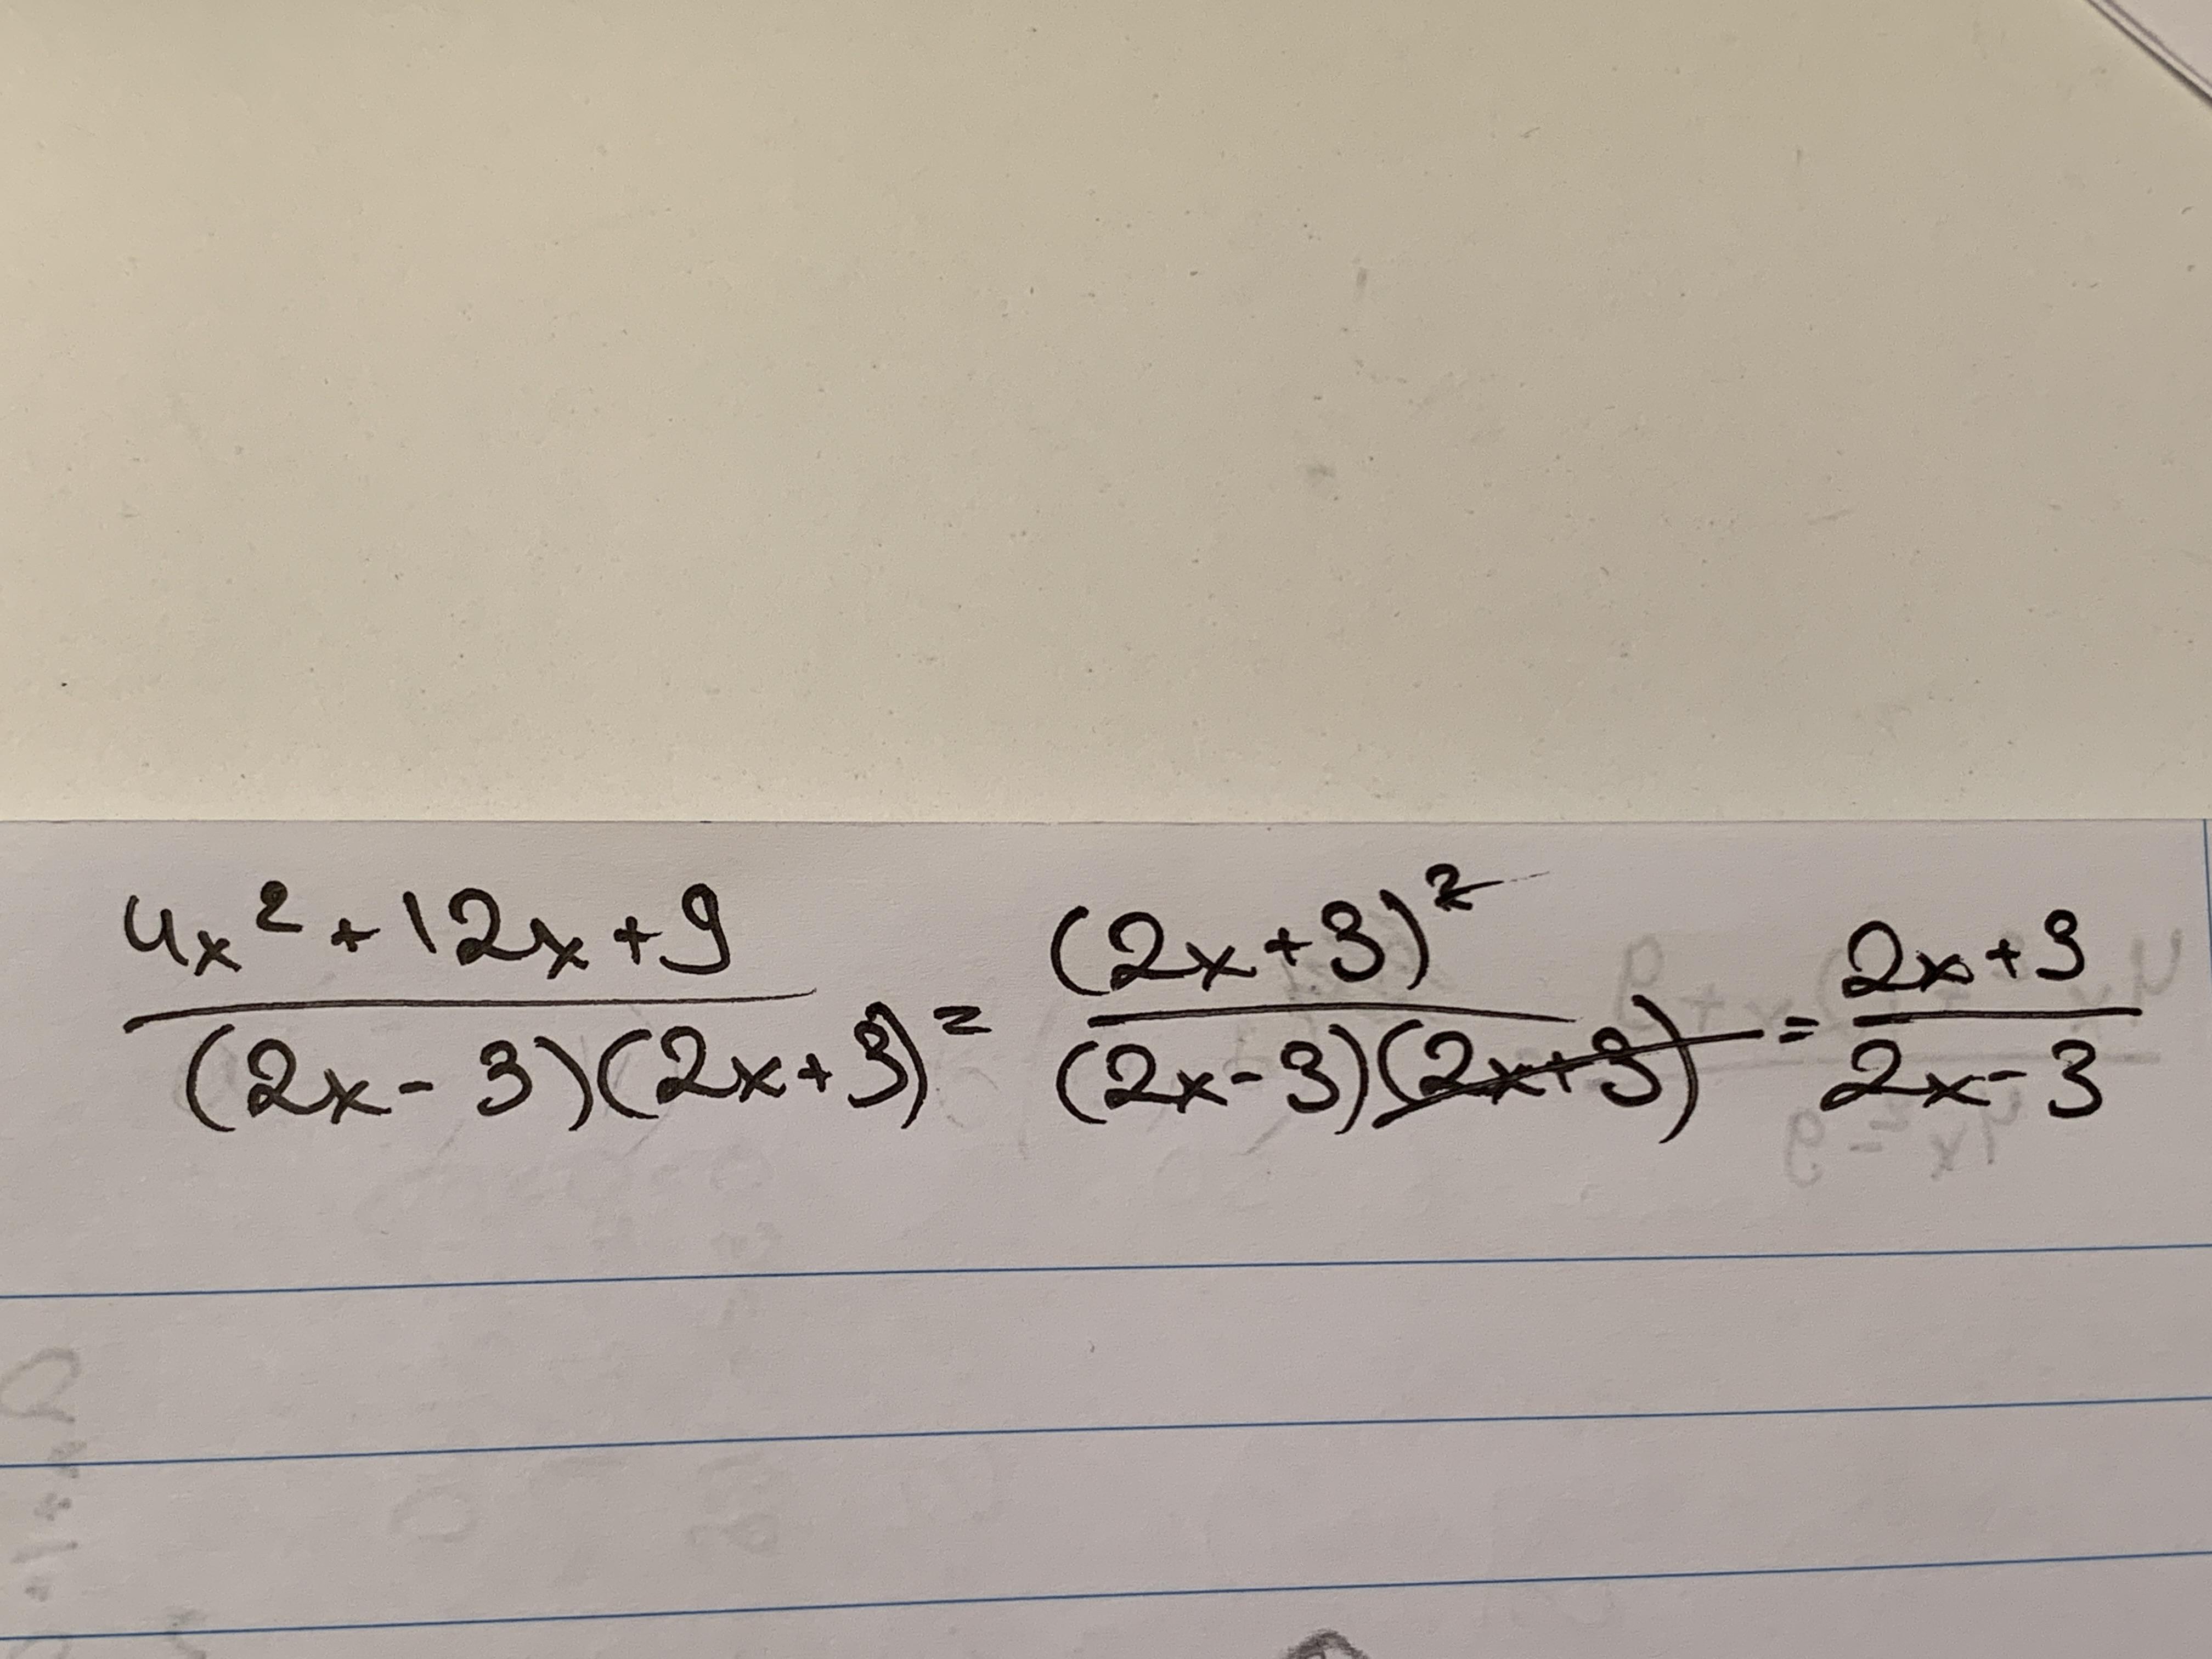 (4x² + 12x + 9)/((2x - 3)(2x + 3)) = (2x + 3)²/((2x - 3)(2x + 3)) = (2x + 3)/(2x - 3)